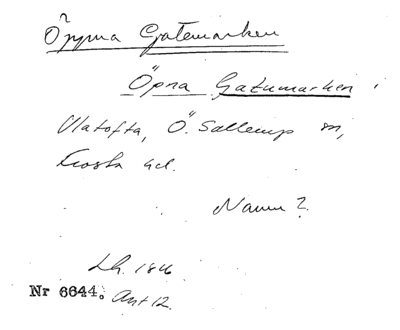 Öppna Gatemarken
Öpna Gatumarken,
Vlatofta, Ö. Sallerup sn,
Frosta hd.
Namn?
Lh. 1846
Nr 6644. Ant 12.